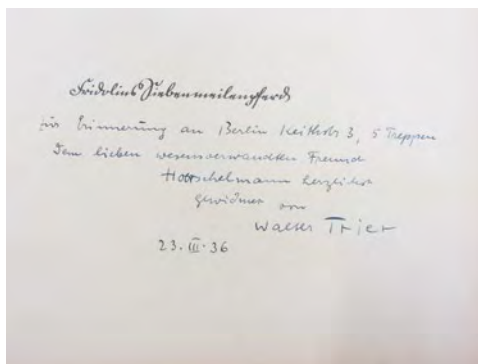 Fridolins Siebenmeilenpferd
zur Erinnerung an Berlin Keithstr 3, 5 Treppen
Dem lieben wesensverwandten Freund
Hottschelmann herzlichst
gewidmet von
Walter Trier
23·III·36